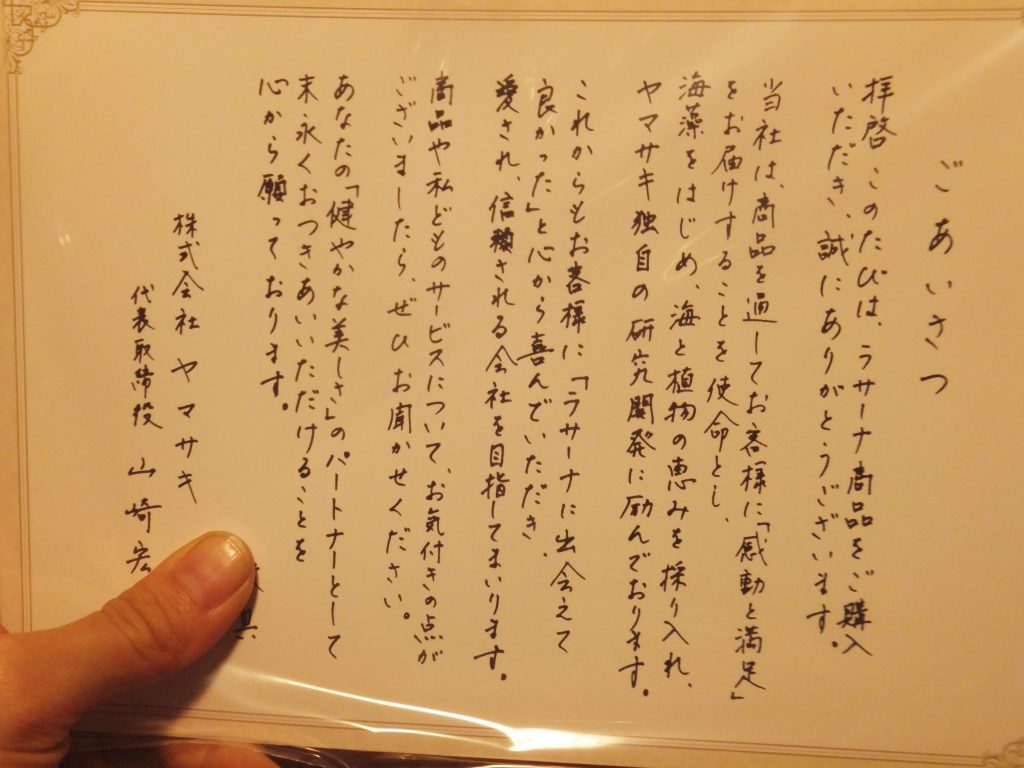 ごあいさつ
拝啓 このたびは、ラサーナ商品をご購入
いただき、誠にありがとうございます。
当社は、商品を通してお客様に「感動と満足」
をお届けすることを使命とし、
海藻をはじめ、海と植物の恵みを採り入れ、
ヤマサキ独自の研究開発に励んでおります。
これからもお客様に「ラサーナに出会えて
良かった」と心から喜んでいただき、
愛され、信頼される会社を目指してまいります。
商品や私どものサービスについて、お気付きの点が
ございましたら、ぜひお聞かせください。
あなたの「健やかな美しさ」のパートナーとして
末永くおつきあいいただけることを
心から願っております。
株式会社ヤマサキ
代表取締役 山﨑宏